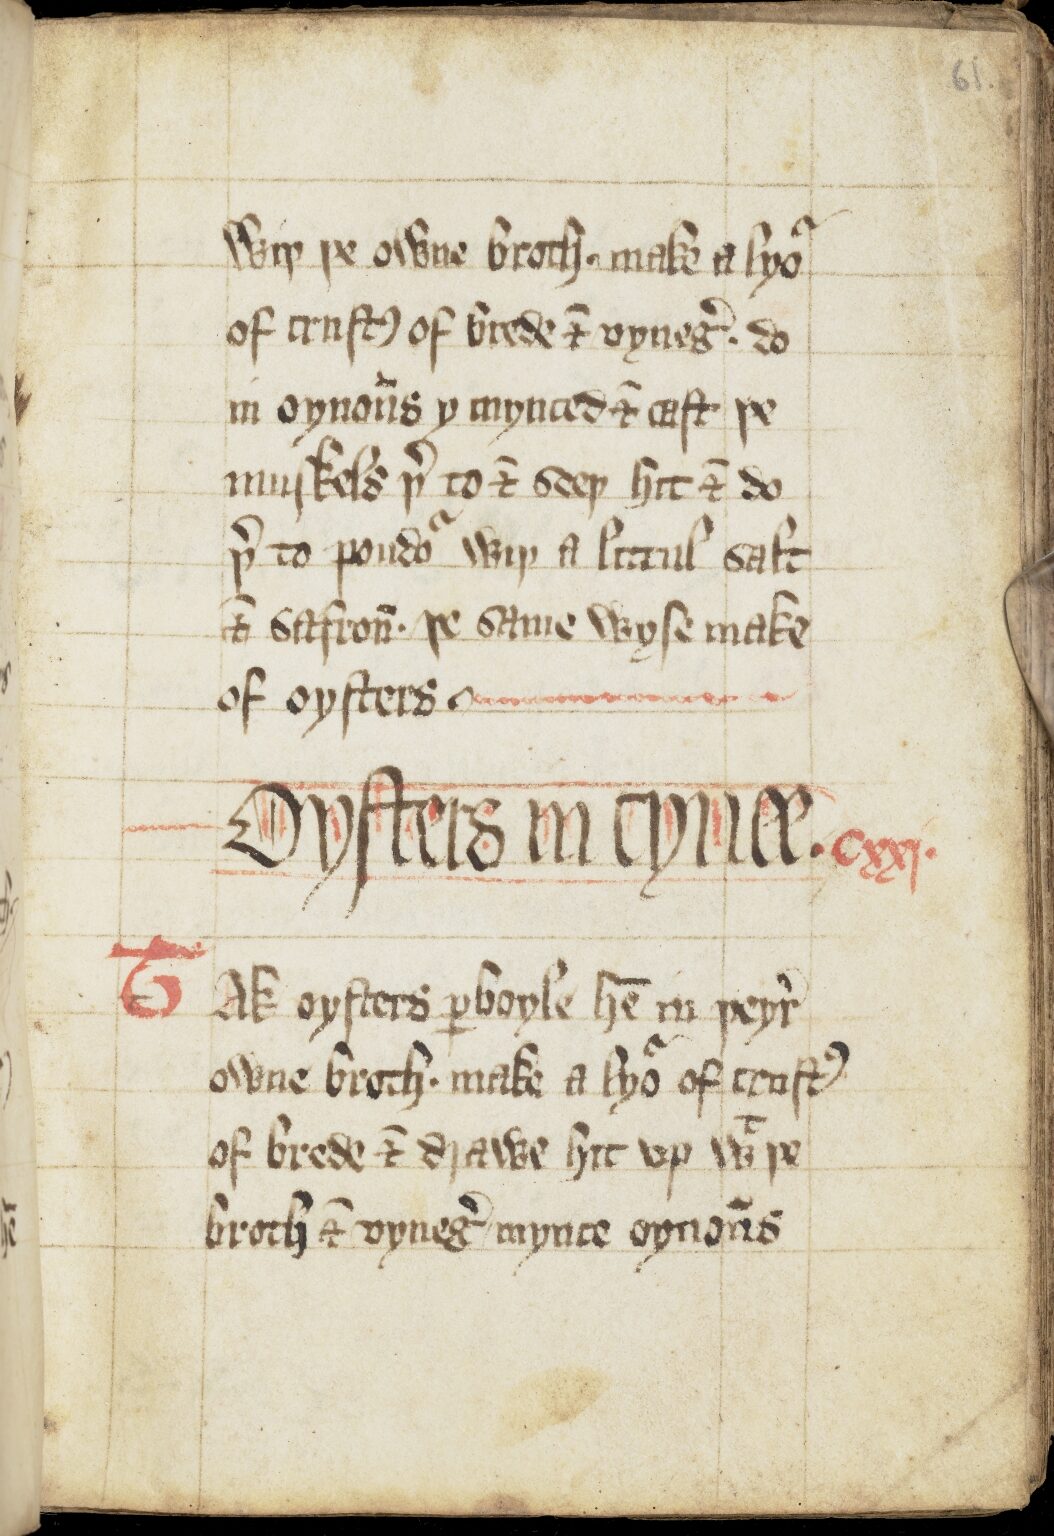 61.
wiþ þe owne broth. make a lyoᵃ
of crustꝭ of brede ⁊ vyneg̉. do
in oynoūs y mynced ⁊ cast þe
muskels þ̉ to ⁊ seeþ hit ⁊ do
þ̉ to poudoᵃ wiþ a littul salt
⁊ safron̄. þe same wyse make
of oysters
Oysters in cynee. cxxj.
TAk oysters ꝑboyle hē in þeyr̉
owne broth. make a lyoᵃ of crustꝭ
of brede ⁊ drawe hit vp wᵗ þe
broth ⁊ vyneg̉ mynce oynoūs